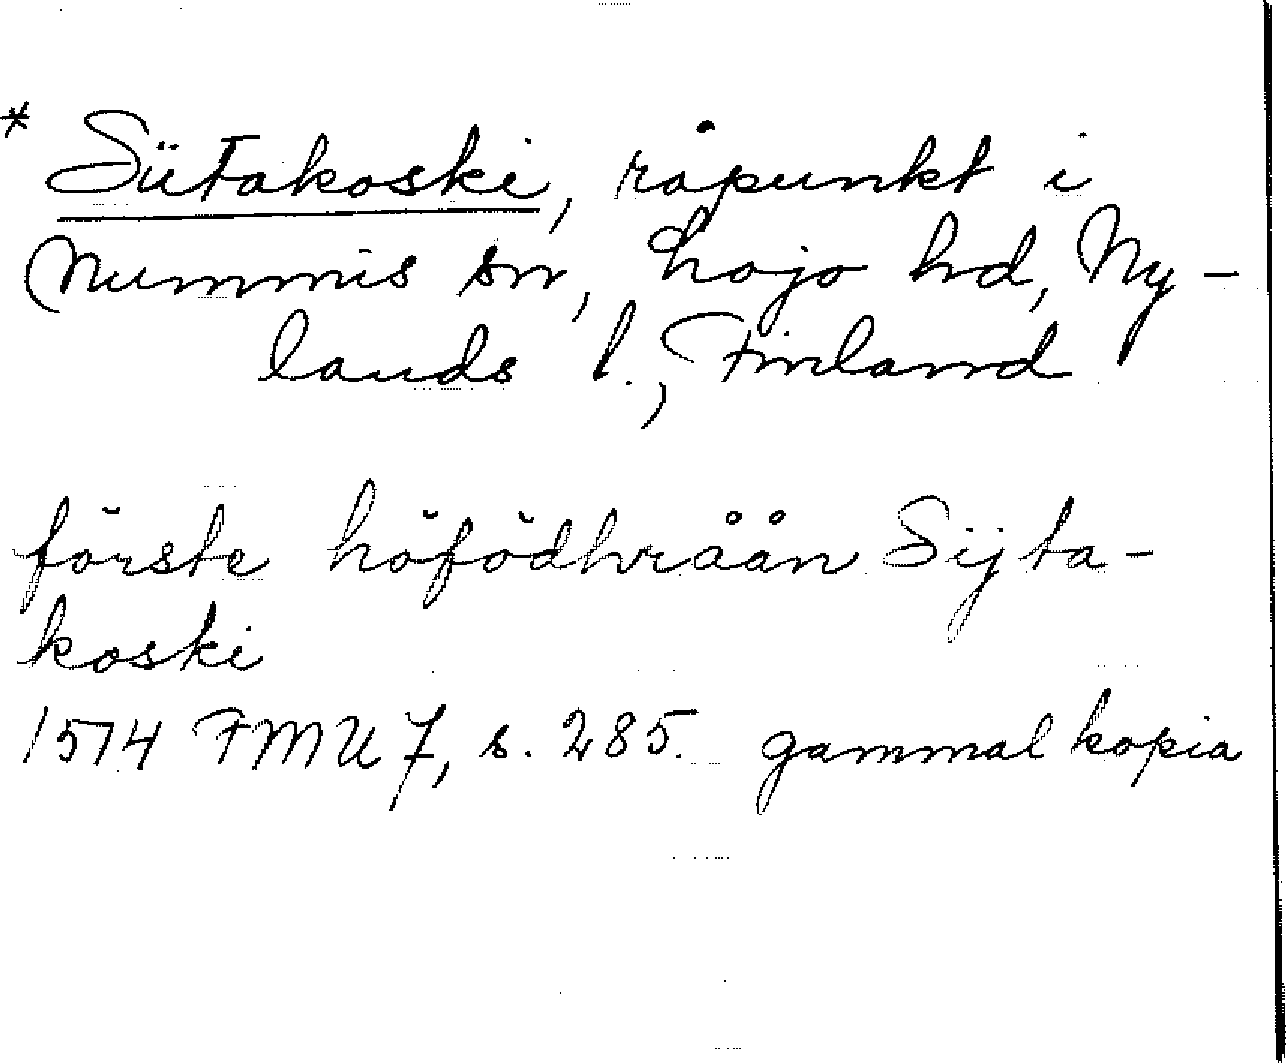 * Siitakoski, råpunkt i
Nummis sn, Lojo hd, Ny-
lands l., Finland
förste höfödhråån Sijta-
koski
1514 FMU 7, s. 285. gammal kopia